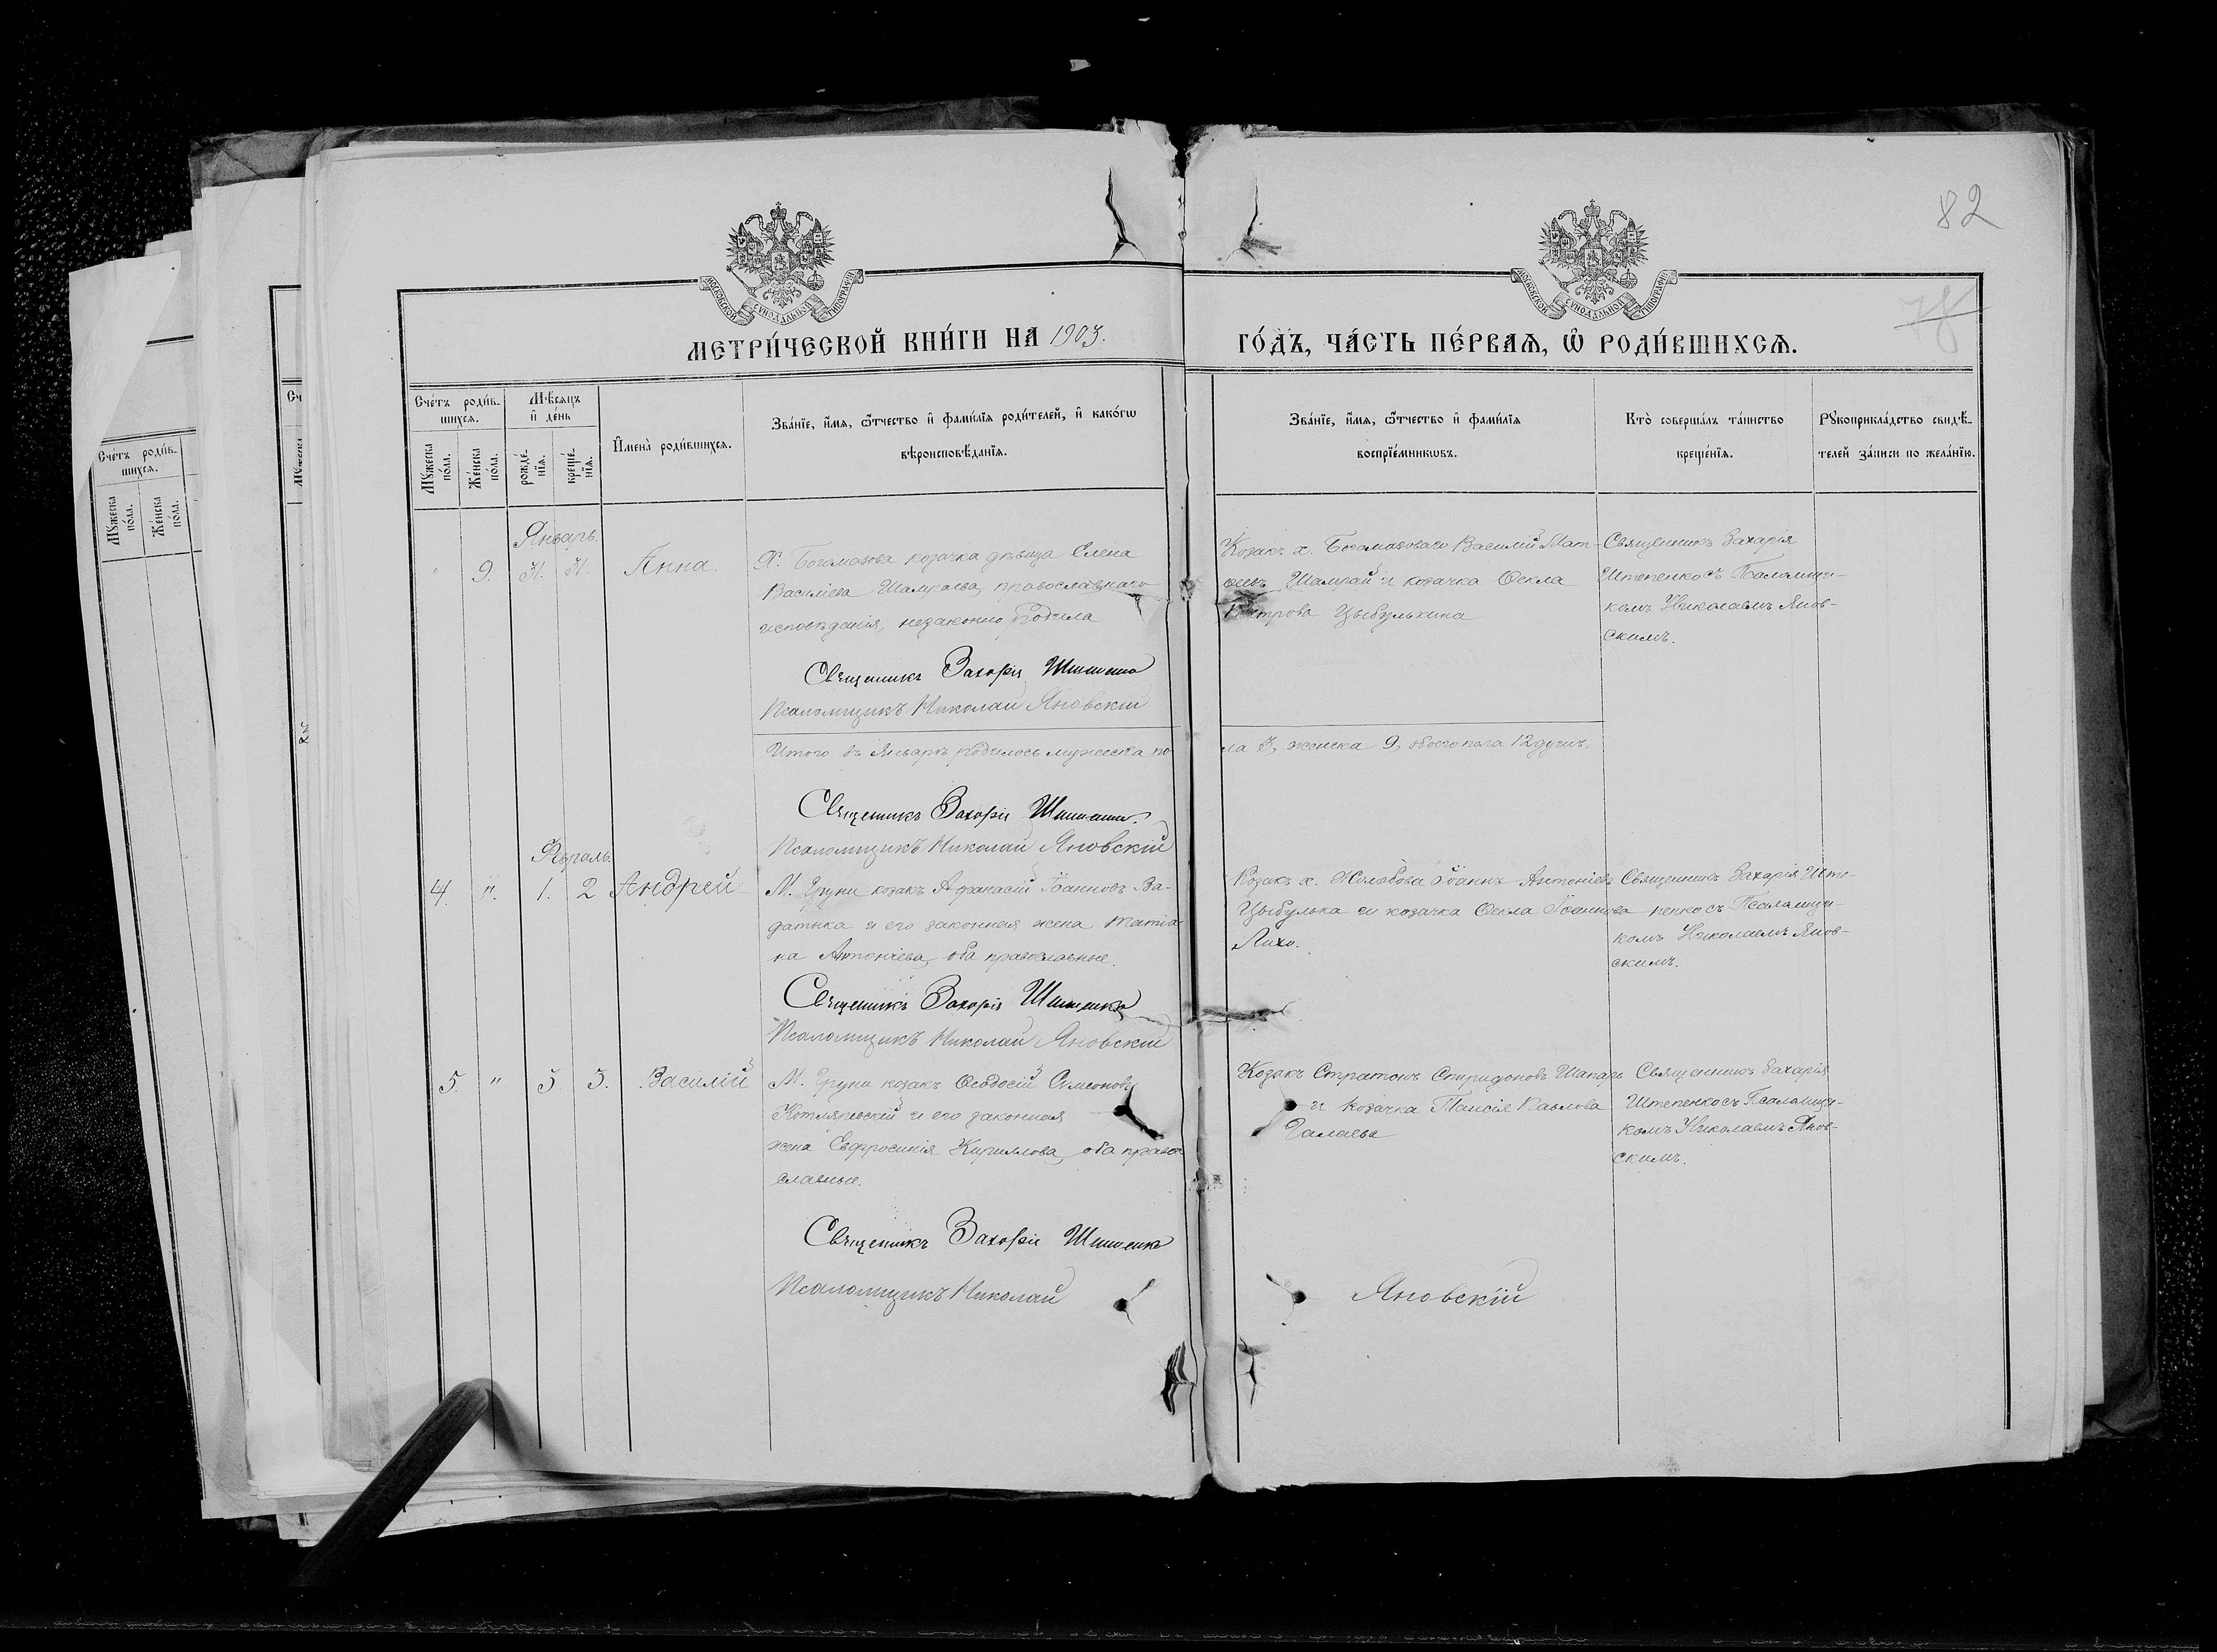 82
МОСКОВСКОЙ СѴНОДАЛЬНОЙ ТИПОГРАФІИ
МОСКОВСКОЙ СѴНОДАЛЬНОЙ ТИПОГРАФІИ
МЕТРИ́ЧЕСКОЙ КНИ́ГИ НА 1903.
ГО́ДЪ, ЧА́СТЬ ПЕ́РВАѦ, Ѽ РОДИ́ВШИХСѦ.
Сче́тъ роди́в-
шихсѧ.
Мꙋжеска по́ла.
Же́нска по́ла.
Мѣ́сѧцъ
и҆ де́нь
рожде́-
нїѧ.
креще́-
нїѧ.
И҆мена̀ роди́вшихсѧ.
Зва́нїе, и҆́мѧ, ѻ҆́тчество и҆ фами́лїѧ роди́телей, и҆ како́гѡ
вѣроисповѣ́данїѧ.
Зва́нїе, и҆́мѧ, ѻ҆́тчество и҆ фами́лїѧ
воспрїе́мникѡвъ.
Кто̀ соверша́лъ та́инство
креще́нїѧ.
Рꙋкоприкла́дство свидѣ́-
телей за́писи по жела́нїю.
Сче́тъ роди́в-
шихсѧ.
Мꙋжеска по́ла.
Же́нска по́ла.
Январь.
" 9. 31. 31. Анна.
Х. Богомазова козачка дѣвица Елена
Василіева Шамраева, православнаго
исповѣданія, незаконно родила
Священникъ Захарія
Псаломщикъ Николай Яновскій
Козакъ х. Богомазоваго Василій Мат-
ѳеевъ Шамрай и козачка Ѳекла
Петрова Цыбулькина
Священникъ Захарія
Штепенко съ Псаломщи-
комъ Николаемъ Янов-
скимъ.
Итого въ Январѣ родилось мужеска по-
ла 3, женска 9, обоего пола 12 душъ.
Священникъ Захарія
Псаломщикъ Николай Яновскій
Февраль.
4. ". 1. 2 Андрей
М. Груни козакъ Аѳанасій Іоанновъ За-
датка и его законная жена Татіа-
на Антоніева, оба православные.
Священникъ Захарія
Псаломщикъ Николай Яновскій
Козакъ х. Іоаннъ Антоніевъ
Цыбулька и козачка Ѳекла Іоаннова
Лихо.
Священникъ Захарія Ште-
пенко съ Псаломщи-
комъ Николаемъ Янов-
скимъ.
5. " 3. 3. Василій
М. Груни козакъ Ѳеодосій Симеоновъ
Котляревскій и его законная
жена Евфросинія Кириллова, оба право-
славные.
Священникъ Захарія
Псаломщикъ Николай
Яновскій
Козакъ Стратонъ Спиридоновъ Шапарь
и козачка Таисія Павлова
Галаева
Священникъ Захарія
Штепенко съ Псаломщи-
комъ Николаемъ Янов-
скимъ.